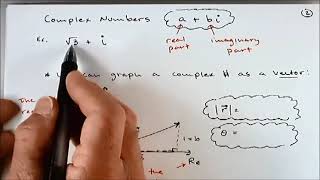 Complex Numbers a + bi
②
Ex. √3 + i
real part imaginary part
can graph a complex # as a vector:
the
|r̅| =
θ =
i = b
Re
the